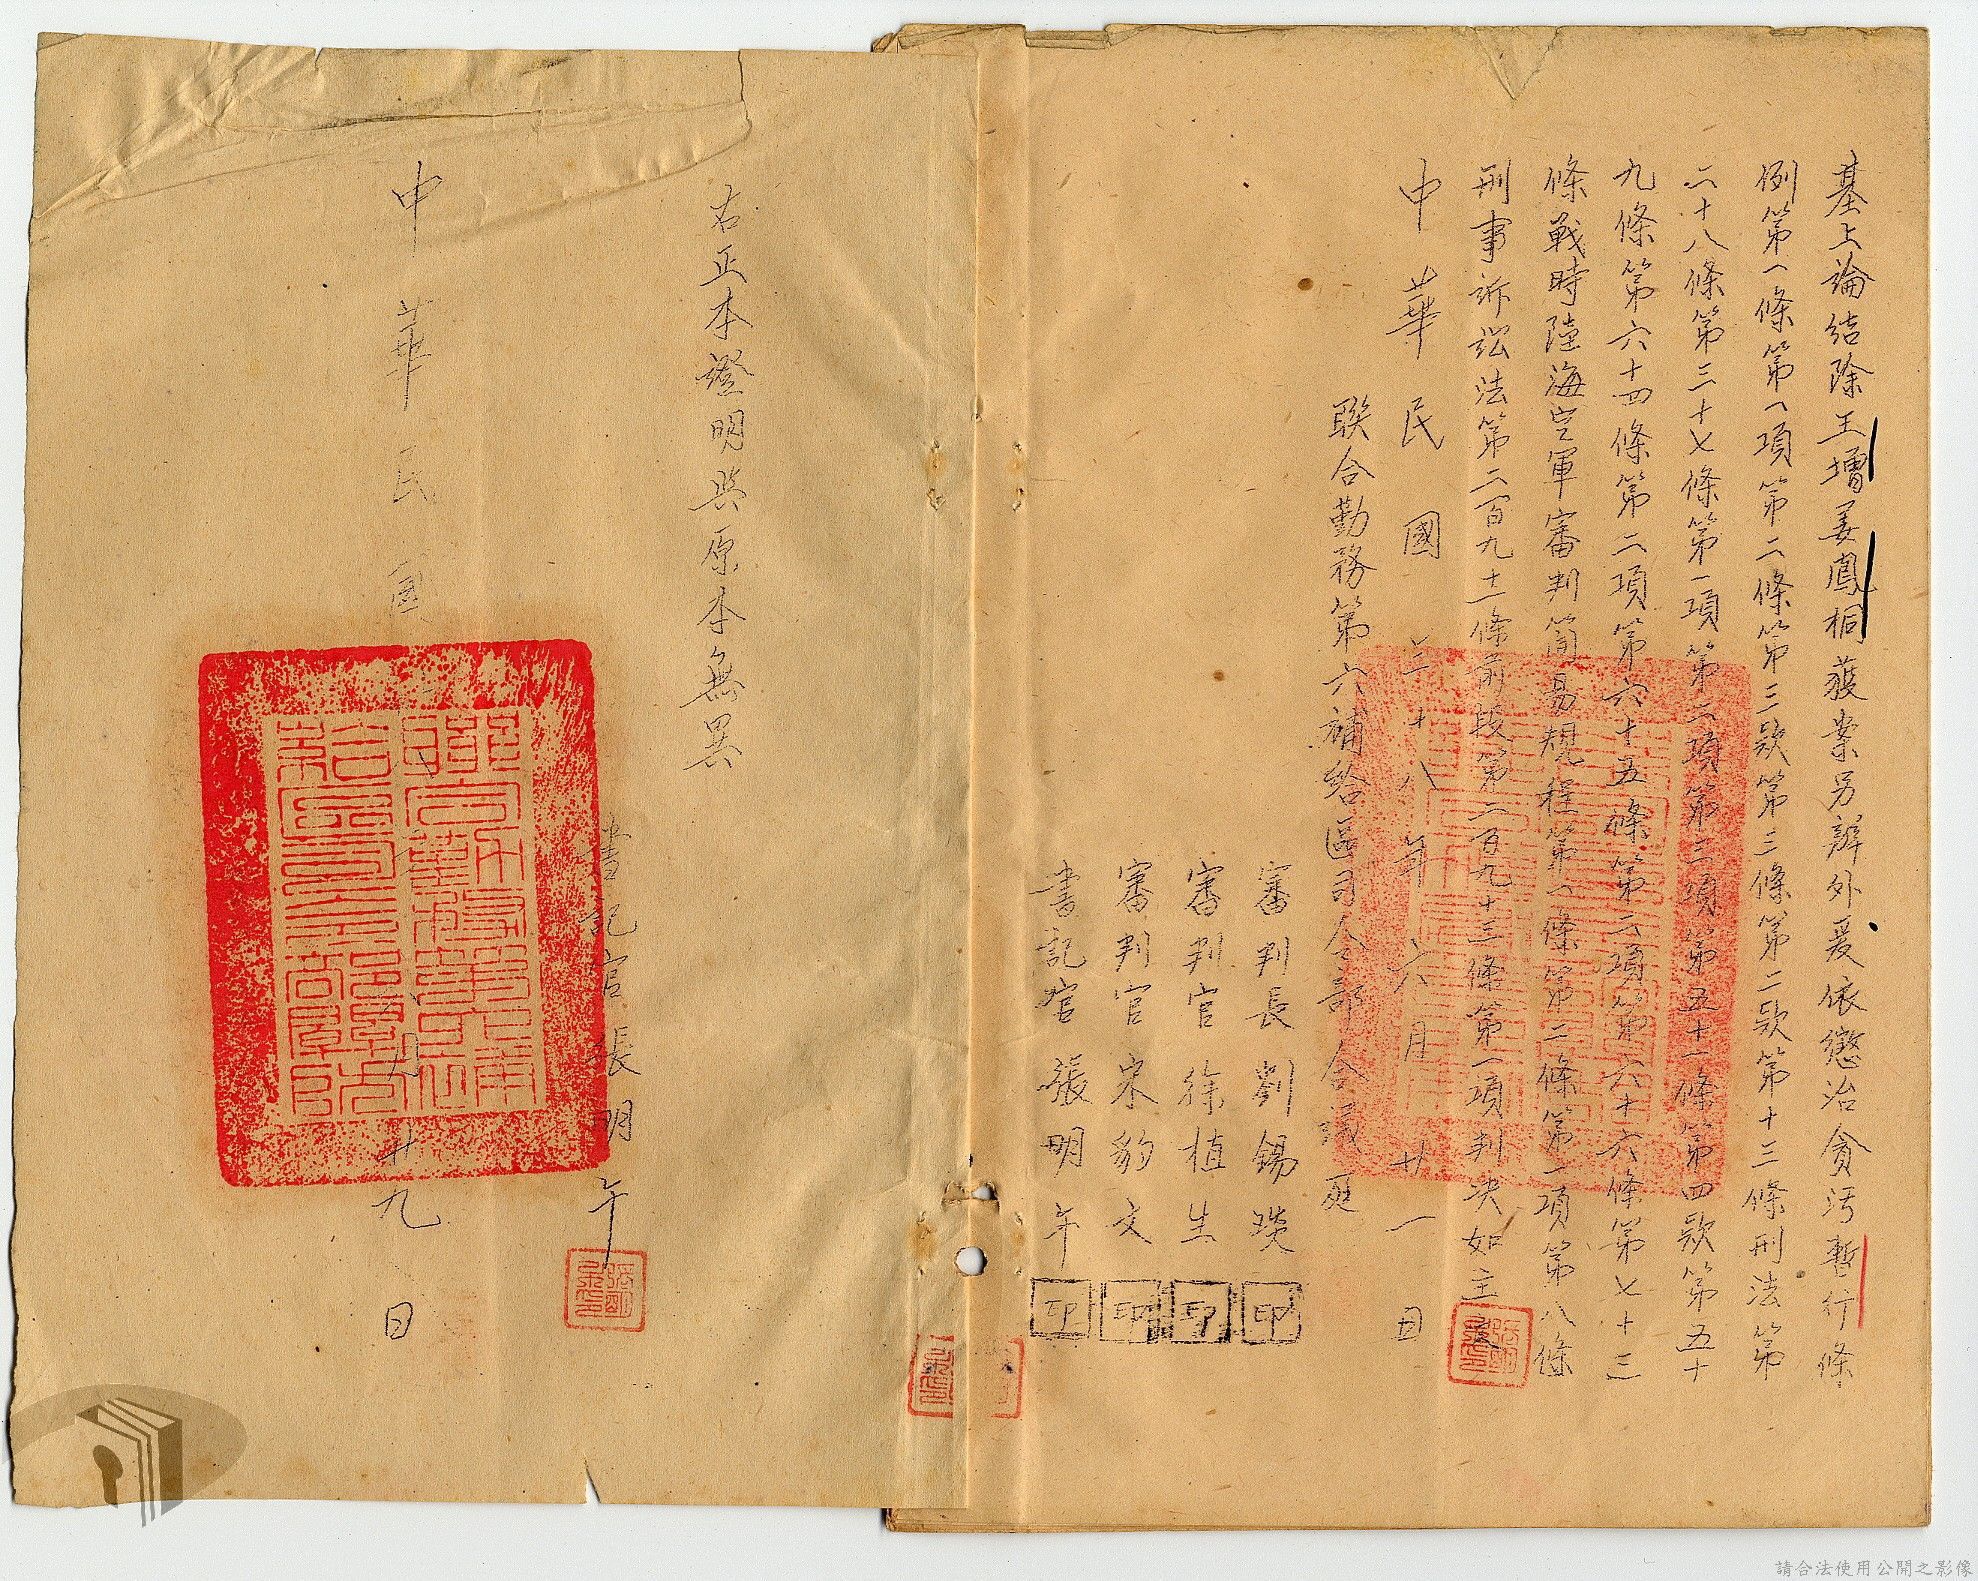 基上論結除王增姜鳳桐獲案另辦外爰依懲治貪污暫行條
例第一條第一項第二條第三款第三條第二款第十三條刑法第
二十八條第三十七條第一項第二項第三項第五十一條第四款第五十
九條第六十四條第二項第六十五條第二項第六十六條第七十三
條戰時陸海空軍審判簡易規程第一條第二條第一項第八條
刑事訴訟法第二百九十一條前段第二百九十三條第一項判決如主文
中華民國三十八年六月廿一日
聯合勤務第六補給區司令部合議庭
審判長劉錫琰 印
審判官徐植生 印
審判官宋豹文 印
書記官張明午 印
右正本證明與原本無異
書記官張明午
中華民國三十八年八月廿九日
請合法使用公開之影像